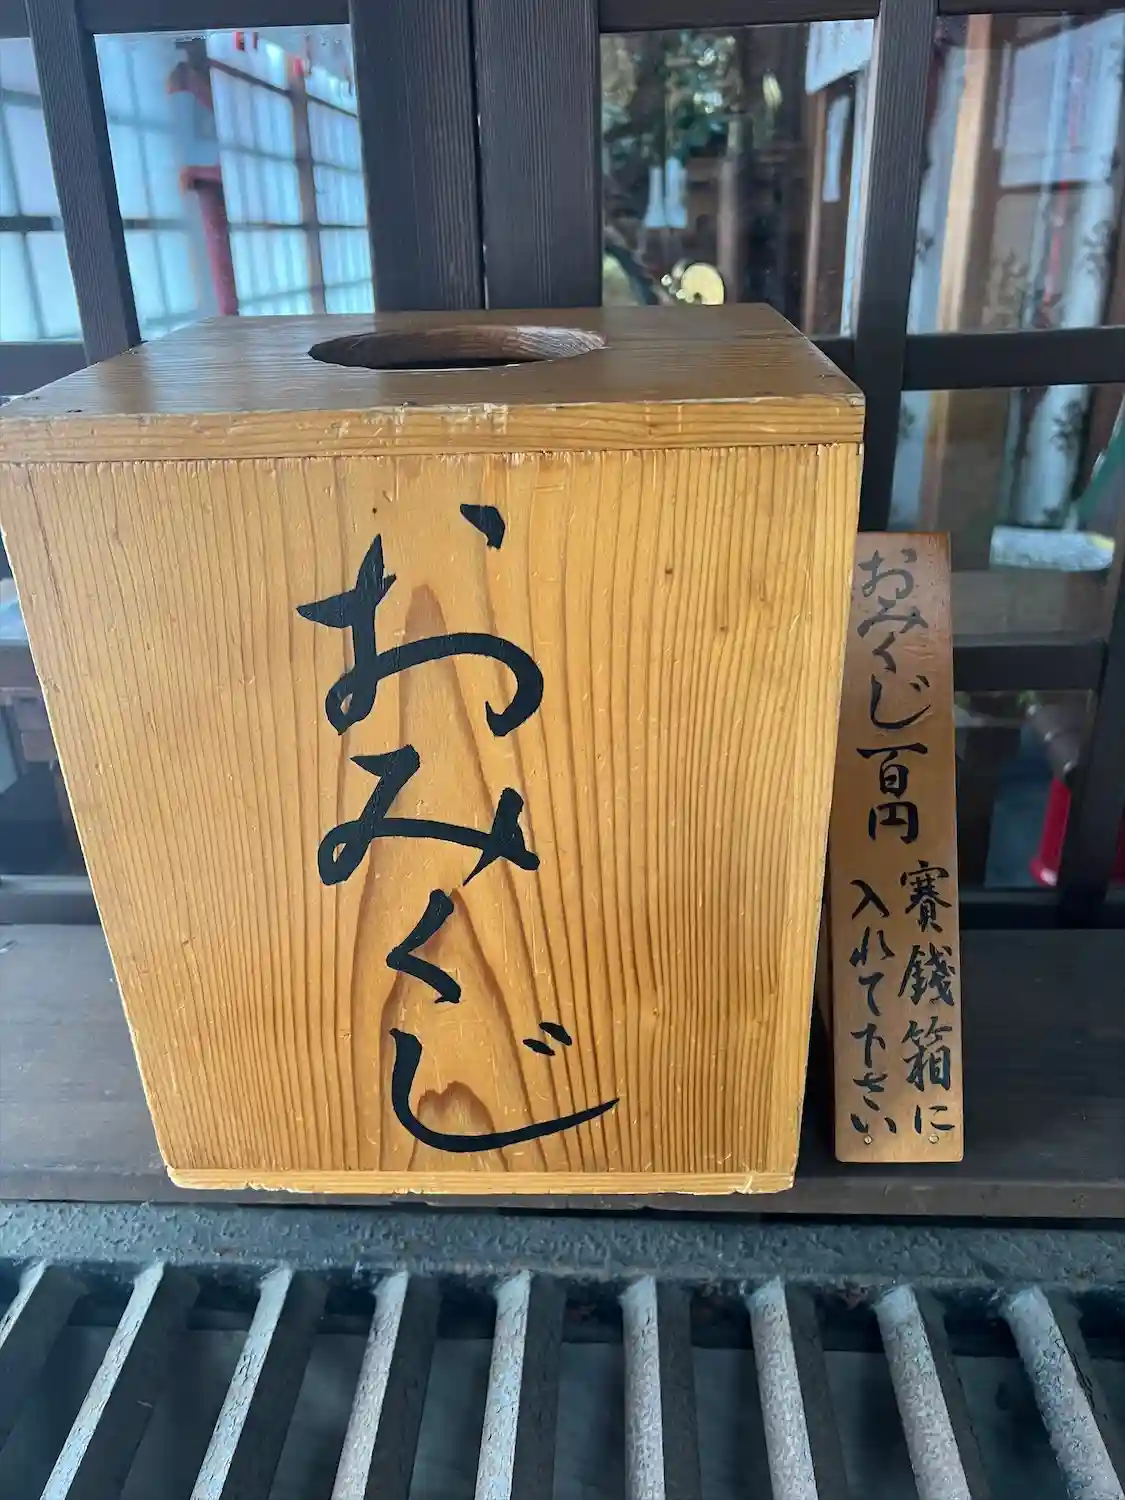 おみくじ
おみくじ百円
賽銭箱に
入れて下さい